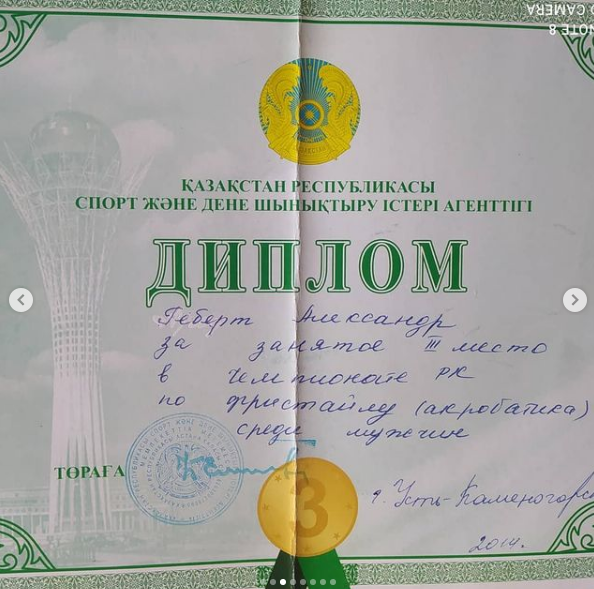 NOTE 8
CAMERA
ҚАЗАҚСТАН РЕСПУБЛИКАСЫ
СПОРТ ЖӘНЕ ДЕНЕ ШЫНЫҚТЫРУ ІСТЕРІ АГЕНТТІГІ
ДИПЛОМ
Геберт Александр
за занятое III место
в Чемпионате РК
по фристайлу (акробатика)
среди мужчин
ТӨРАҒА
3
г. Усть-Каменогорск
2014.